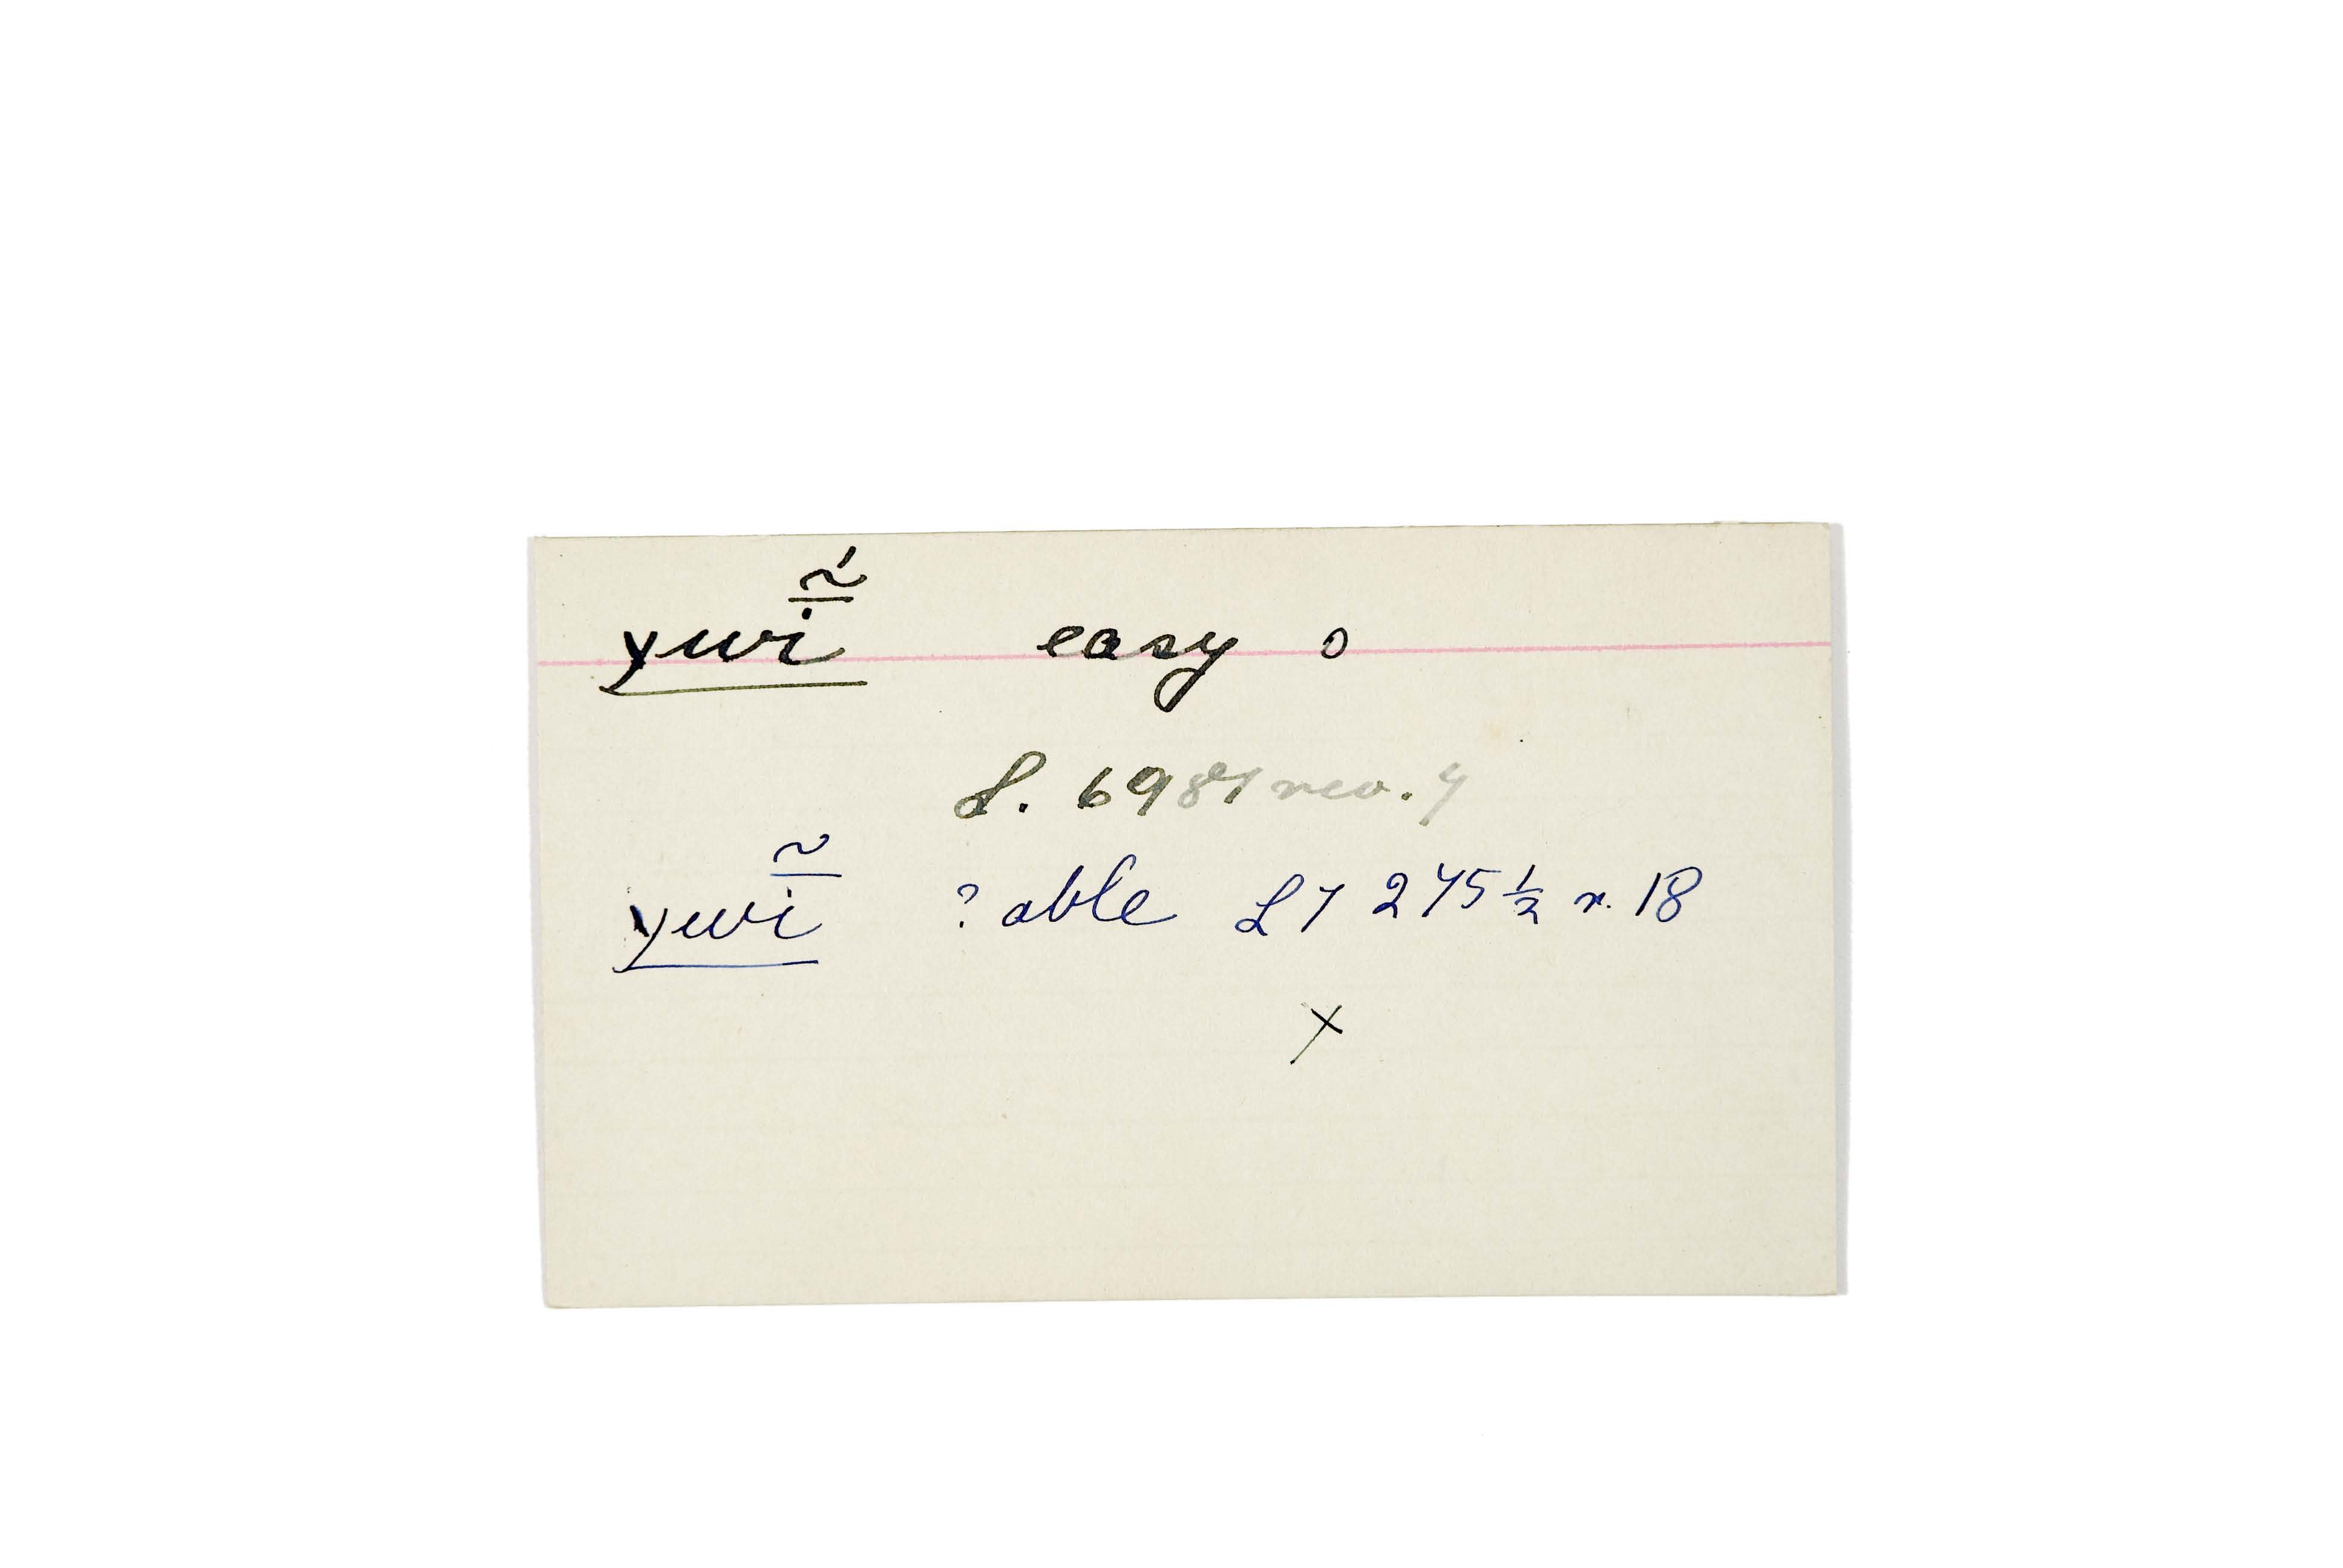 ɣwĩ̄́ easy o
L. 6981 rev. 4
ɣwĩ̄ ? able L7 275 ½ r. 18
x